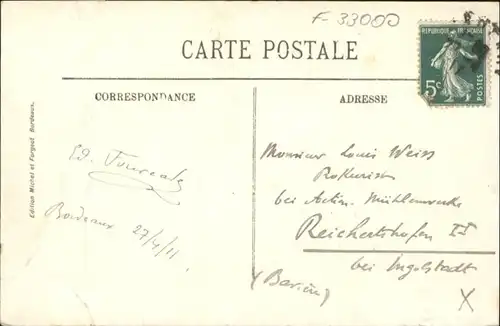 F-33000
CARTE POSTALE
REPUBLIQUE FRANÇAISE
5c
POSTES
CORRESPONDANCE
ADRESSE
Edition Michel et Forgeot Bordeaux.
Ed.
Bordeaux 27/4/11
Monsieur Louis Weiss
Prokurist
bei Actien-Mühlenwerke
Reichertshofen II
bei Ingolstadt
(Bavière)
X